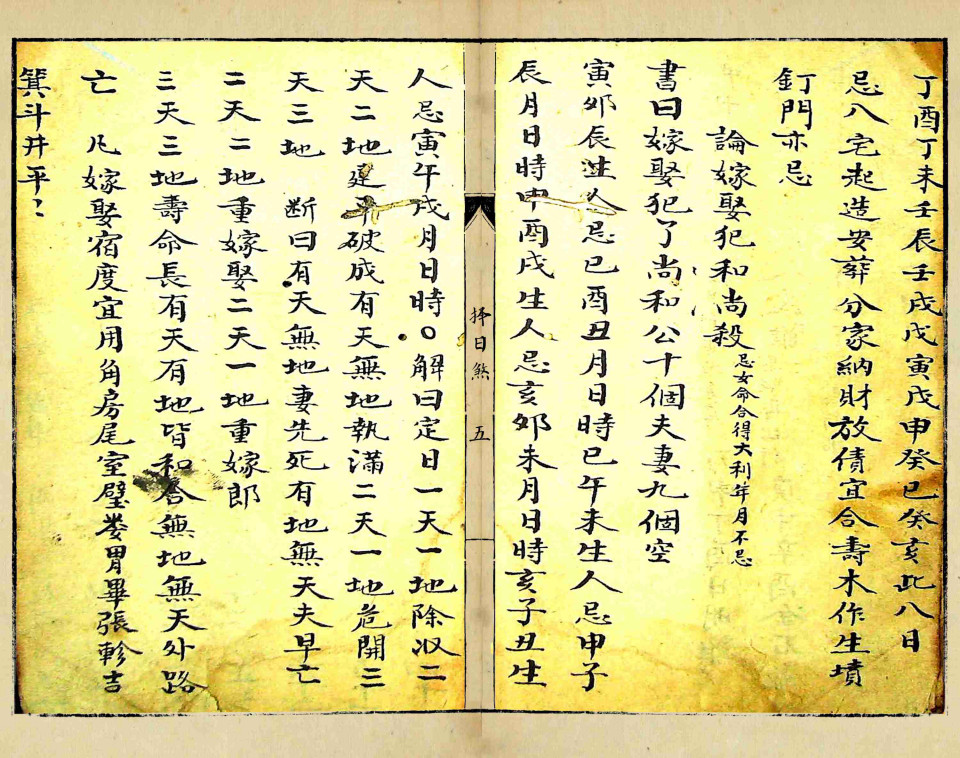 丁酉丁未壬辰壬戌戊寅戊申癸巳癸亥此八日
忌八宅起造安葬分家納財放債宜合壽木作生墳
釘門亦忌
論嫁娶犯和尚殺忌女命合得大利年月不忌
書曰嫁娶犯了尚和公十個夫妻九個空
寅卯辰生人忌巳酉丑月日時巳午未生人忌申子
辰月日時申酉戌生人忌亥卯未月日時亥子丑生
擇日煞 五
人忌寅午戌月日時〇解曰定日一天一地除收二
天二地建平破成有天無地執滿二天一地危開三
天三地 断曰有天無地妻先死有地無天夫早亡
二天二地重嫁娶二天一地重嫁郎
三天三地壽命長有天有地皆和合無地無天外路
亡 凡嫁娶宿度宜用角房尾室壁婁胃畢張軫吉
箕斗井平〻